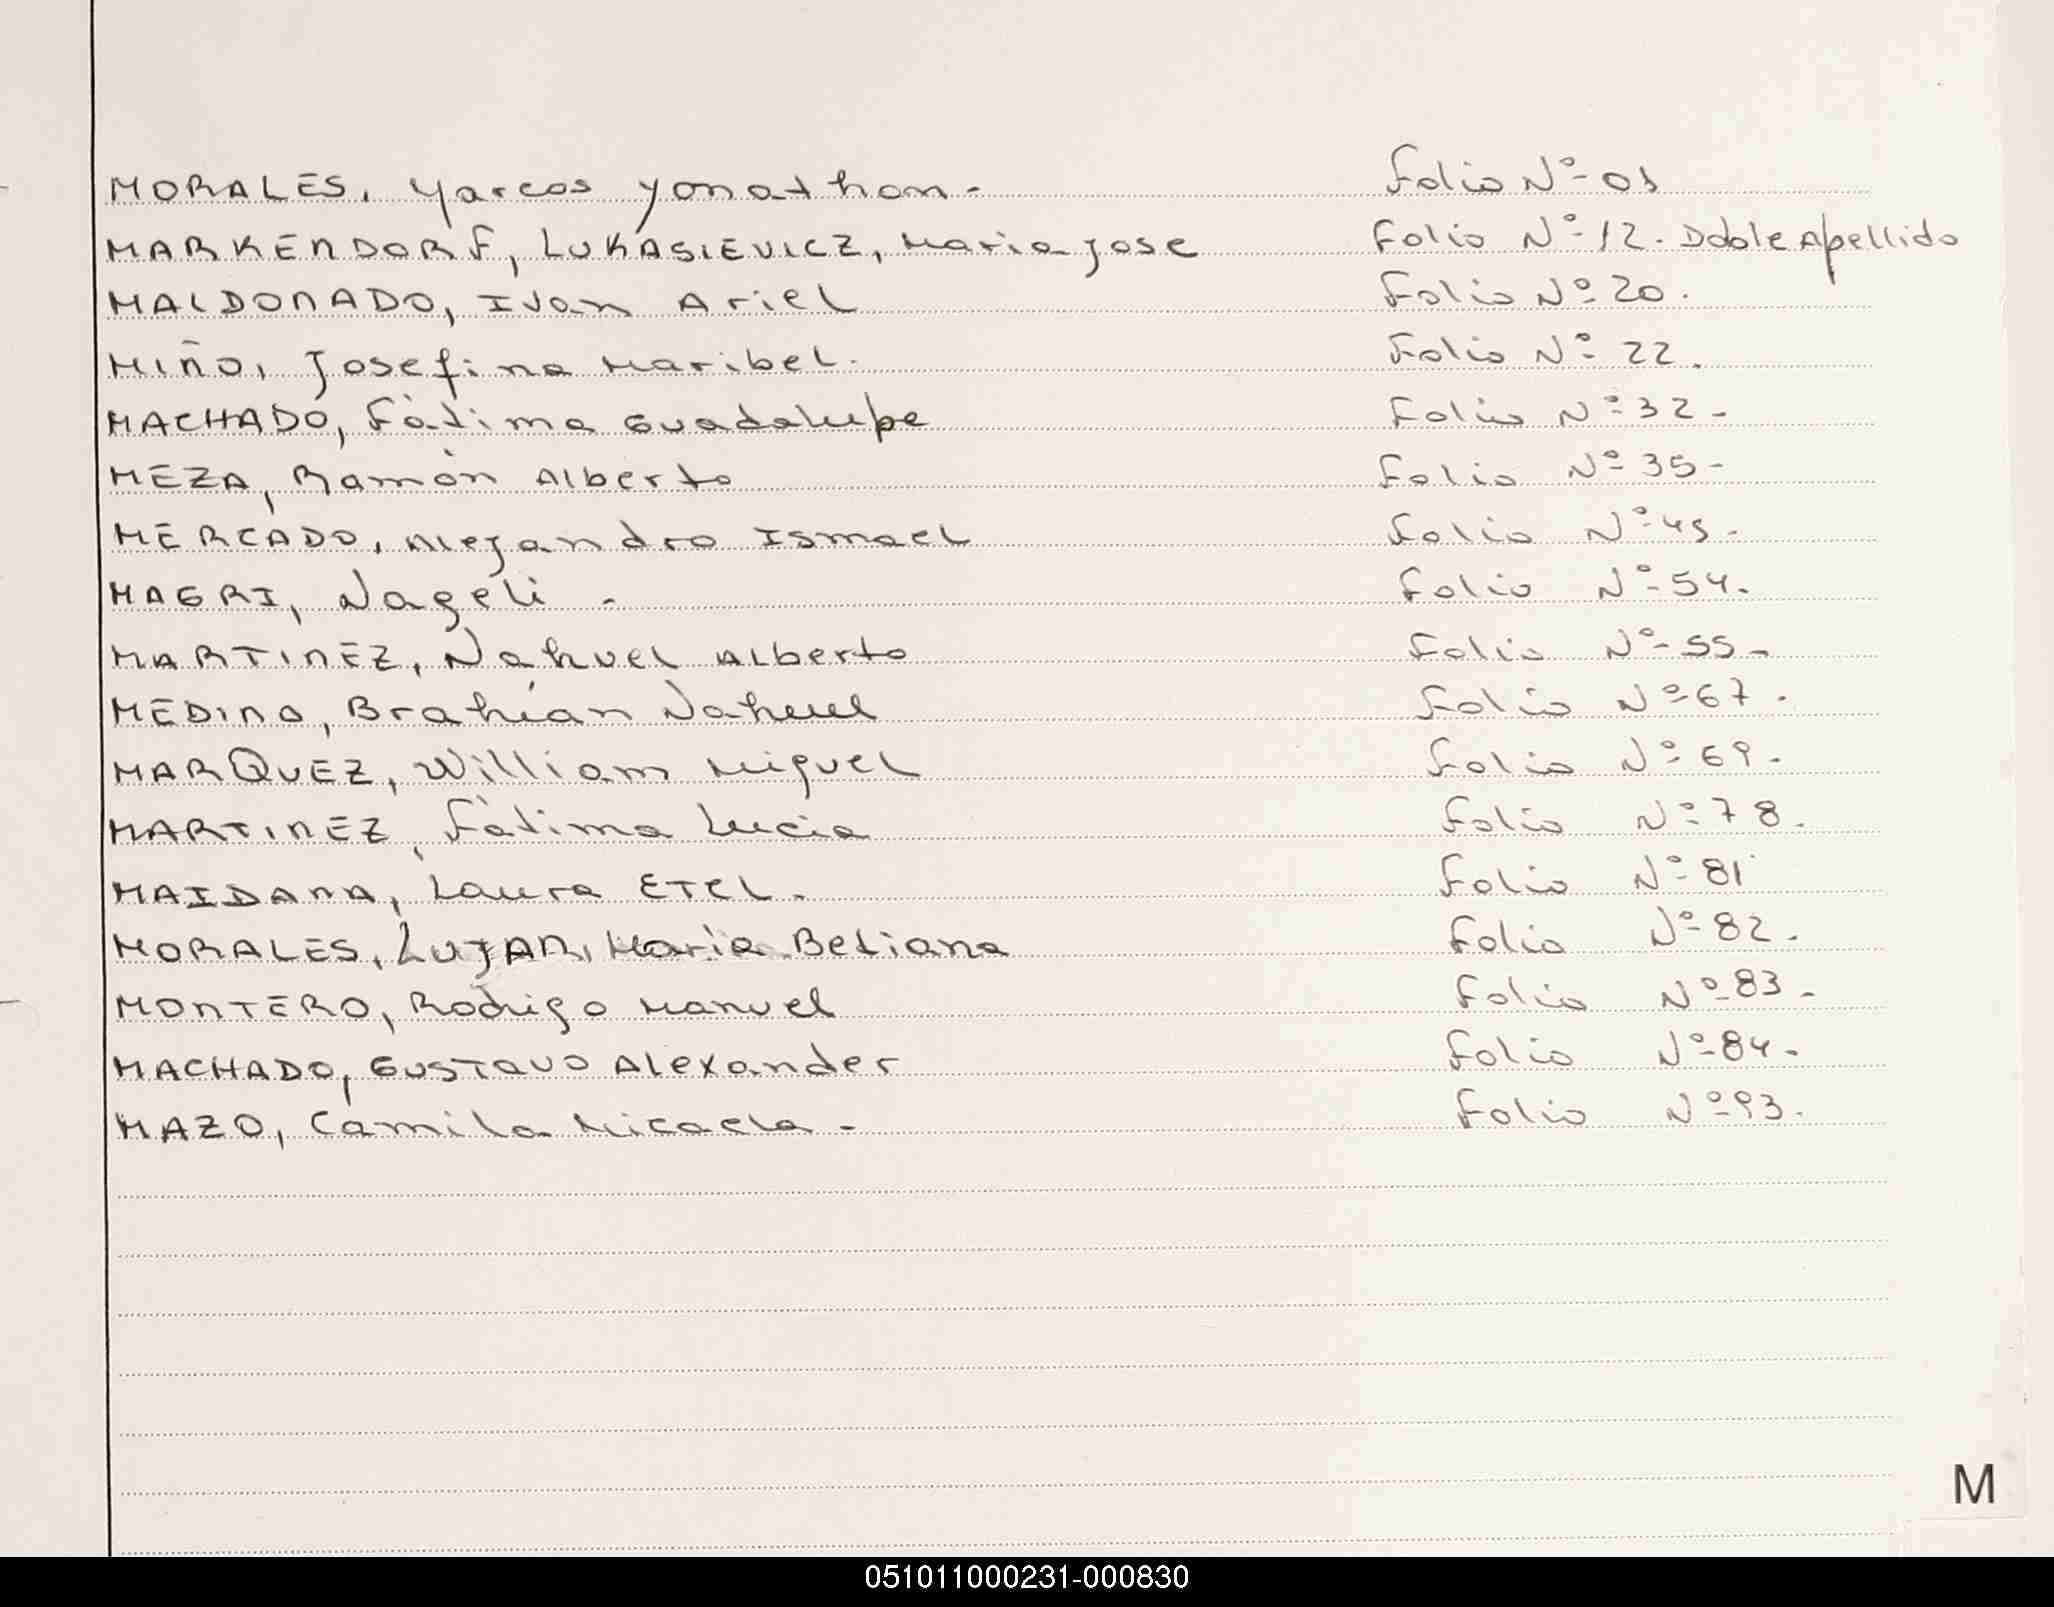 MORALES, Yarcos Yonathan. Folio Nº 01
MARKENDORF, LUKASIEVICZ, Maria Jose Folio Nº 12. Doble Apellido
MALDONADO, Ivan Ariel Folio Nº 20.
MIÑO, Josefina Maribel. Folio Nº 22.
MACHADO, Fàtima Guadalupe Folio Nº 32-
MEZA, Ramòn Alberto Folio Nº 35-
MERCADO, Alejandro Ismael Folio Nº 45-
MAGRI, Nageli. Folio Nº 54.
MARTINEZ, Nahuel Alberto Folio Nº 55-
MEDINA, Brahían Nahuel Folio Nº 67.
MARQUEZ, William Miguel Folio Nº 69.
MARTINEZ, Fàtima Lucia Folio Nº 78.
MAIDANA, Laura ETEL. Folio Nº 81
MORALES, LUJAN, Maria Betiana Folio Nº 82.
MONTERO, Rodrigo Manuel Folio Nº 83-
MACHADO, Gustavo Alexander Folio Nº 84-
MAZO, Camila Micaela- Folio Nº 93.
M
051011000231-000830